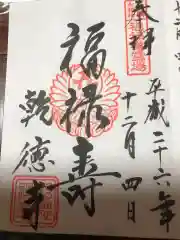 奉拝
平成二十六年
十二月四日
福禄寿
乾徳寺